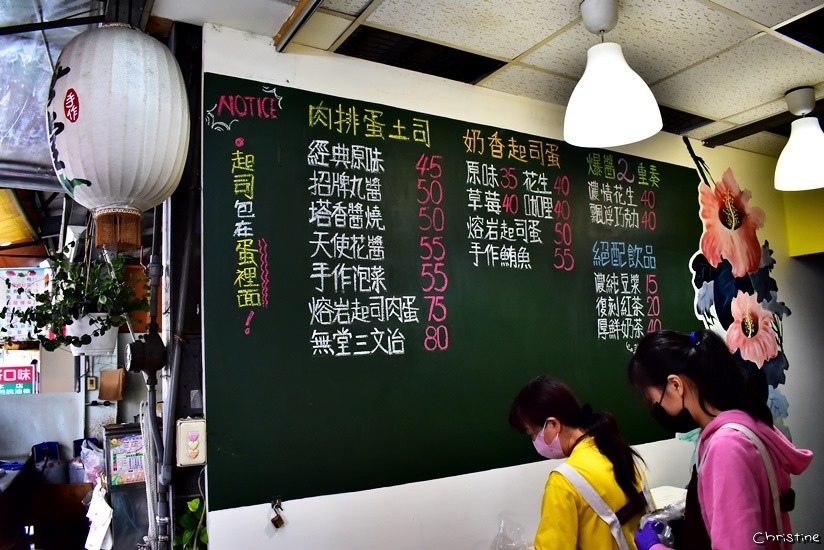 手作
NOTICE
起司包在蛋裡面!
肉排蛋土司
經典原味 45
招牌丸醬 50
塔香醬燒 50
天使花醬 55
手作泡菜 55
熔岩起司肉蛋 75
無堂三文治 80
奶香起司蛋
原味35 花生40
草莓40 咖哩40
熔岩起司蛋 50
手作鮪魚 55
爆醬2重奏
濃情花生 40
飄浮巧克力 40
絕配飲品
濃純豆漿 15
復刻紅茶 20
厚鮮奶茶 40
口味
Christine